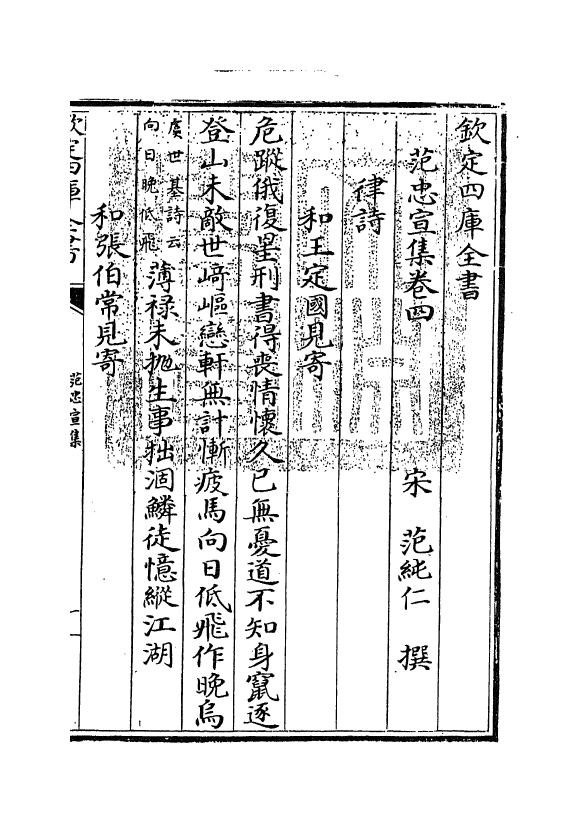 欽定四庫全書
范忠宣集卷四　宋　范純仁　撰
律詩
和王定國見寄
危蹤俄復罣刑書得喪情懷久已無憂道不知身竄逐
登山未敵世﨑嶇戀軒無計慚疲馬向日低飛作晚烏
虞世基詩云
向日晚低飛
薄禄未抛生事拙涸鱗徒憶縱江湖
和張伯常見寄
欽定四庫全書
范忠宣集
一